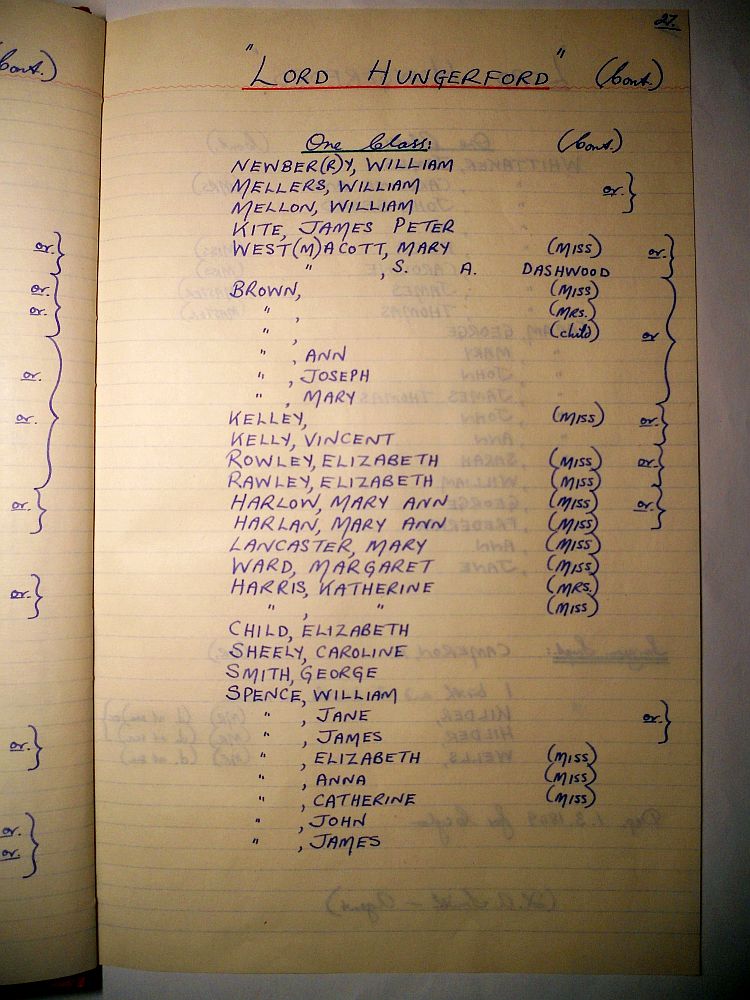 27.
"LORD HUNGERFORD" (Cont.)
One Class: (Cont.)
NEWBER(R)Y, WILLIAM
MELLERS, WILLIAM or. }
MELLON, WILLIAM
KITE, JAMES PETER
WEST(M)ACOTT, MARY (MISS) or. }
" , S. A. DASHWOOD
BROWN, (MISS)
" , (MRS.)
" , (child) or }
" , ANN
" , JOSEPH
" , MARY
KELLEY, (MISS) or. }
KELLY, VINCENT
ROWLEY, ELIZABETH (MISS) or. }
RAWLEY, ELIZABETH (MISS)
HARLOW, MARY ANN (MISS) or. }
HARLAN, MARY ANN (MISS)
LANCASTER, MARY (MISS)
WARD, MARGARET (MISS)
HARRIS, KATHERINE (MRS.)
" , " (MISS)
CHILD, ELIZABETH
SHEELY, CAROLINE
SMITH, GEORGE
SPENCE, WILLIAM
" , JANE or. }
" , JAMES
" , ELIZABETH (MISS)
" , ANNA (MISS)
" , CATHERINE (MISS)
" , JOHN
" , JAMES
(Cont.)
or. }
or. }
or.
or. }
or.
or. }
or. }
or. }
or. }
or.